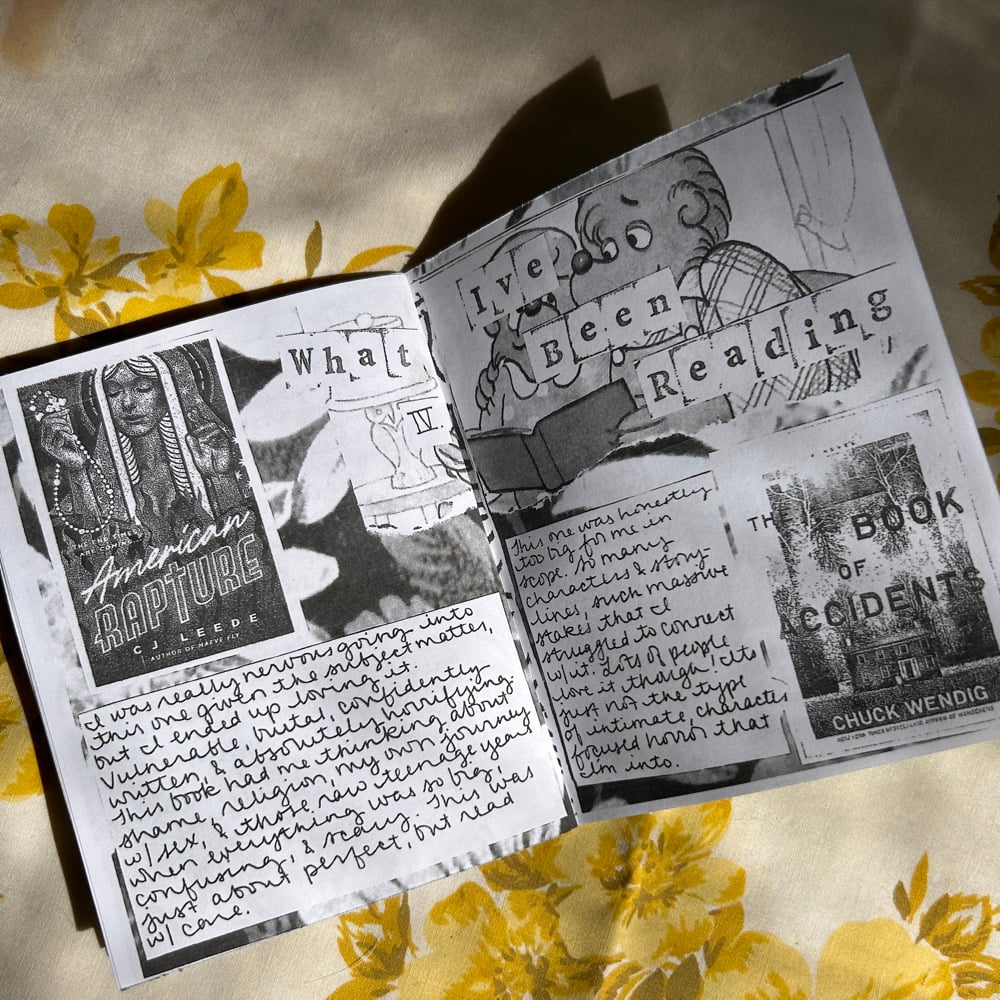 What
IV.
THE END TIMES
ARE COMING
American
RAPTURE
CJ LEEDE
AUTHOR OF MAEVE FLY
I was really nervous going into
this one given the subject matter,
but I ended up loving it.
Vulnerable, brutal, confidently
written, & absolutely horrifying.
This book had me thinking about
shame, religion, my own journey
w/ sex, & those raw teenage years
when everything was so big,
confusing, & scary. This was
just about perfect, but read
w/ care.
I've
Been
Reading
This one was honestly
too big for me in
scope. So many
characters & story-
lines, such massive
stakes that I
struggled to connect
w/ it. Lots of people
love it though! It's
just not the type
of intimate character
focused horror that
I'm into.
THE BOOK
OF
ACCIDENTS
CHUCK WENDIG
NEW YORK TIMES BESTSELLING AUTHOR OF WANDERERS